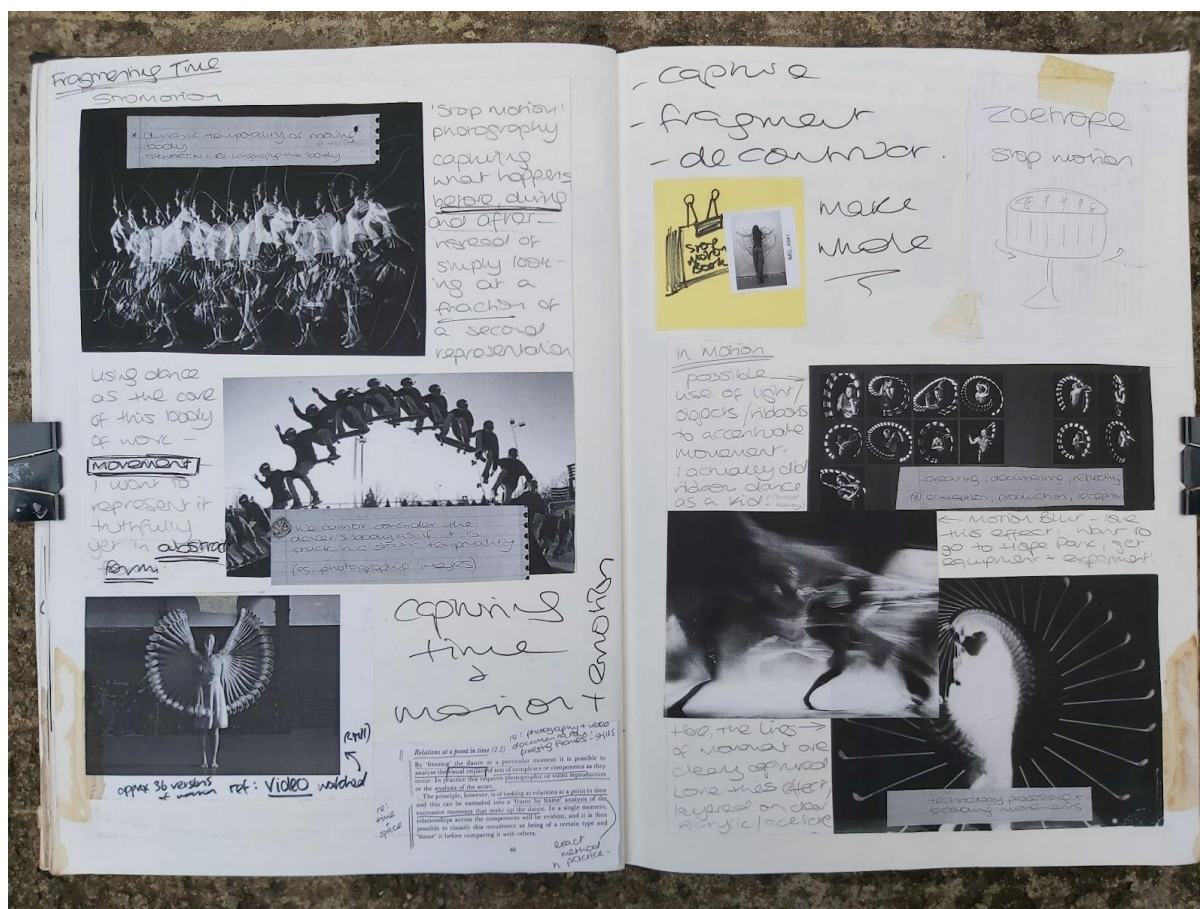 Fragmenting Time
Stromotion
* dynamic temporality of moving
body.
'Stop motion'
photography
capturing
what happens
before, during
and after -
instead of
simply look-
ing at a
fraction of
a second
representation
using dance
as the core
of this body
of work -
movement
I want to
represent it
truthfully
yet in abstract
form.
We cannot consider the
dancer's body as if it is
stuck in a static temporality
(as photographic images)
approx 36 versions
of woman
ref: Video watched
(still)
capturing
time
&
motion + emotion
re: photography + video
documentation
freezing frames / stills
Relations at a point in time (2.2)
By 'freezing' the dance at a particular moment it is possible to
analyse the visual impact of sets of complexes or components as they
occur. In practice this requires photographic or video reproduction
or the analysis of the score.
The principle, however, is of looking at relations at a point in time
and this can be extended into a 'frame by frame' analysis of the
successive moments that make up the dance. In a single moment,
relationships across the components will be evident, and it is then
possible to classify this occurrence as being of a certain type and
'frame' it before comparing it with others.
46
re:
time
+
space
exact
method
in practice -
- capture
- fragment
- deconstruct.
make
whole
Stop
Motion
Book
IMG_4941
Zoetrope
stop motion
in motion
possible
use of light/
objects/ribbons
to accentuate
movement.
I actually did
ribbon dance
as a kid -
creating, documenting, repeating
conception, production, reception
← Motion Blur - love
this effect want to
go to Hope Park, get
equipment + experiment!
Here, the lines
of movement are
clearly captured
Love this effect,
layered on clear
acrylic/acetate
technology processing +